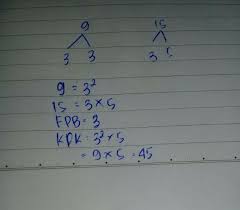 9 15
3 3 3 5
9 = 3²
15 = 3 × 5
FPB = 3
KPK = 3² × 5
= 9 × 5 = 45